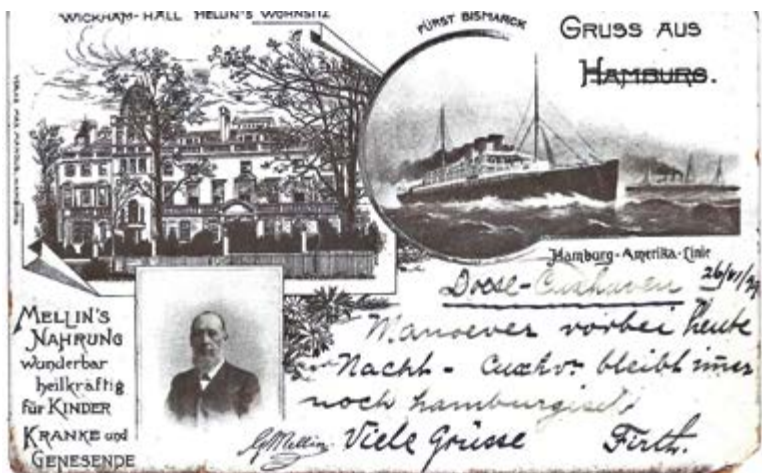 WICKHAM-HALL MELLIN'S WOHNSITZ
FÜRST BISMARCK
GRUSS AUS
HAMBURG.
Hamburg-Amerika-Linie
Doose-Cuxhaven
Manoever vorbei heute
Nacht - Cuxhv. bleibt
noch hamburgisch
Viele Grüsse Firth.
MELLIN'S
NAHRUNG
wunderbar
heilkräftig
für KINDER
KRANKE und
GENESENDE
Mellin